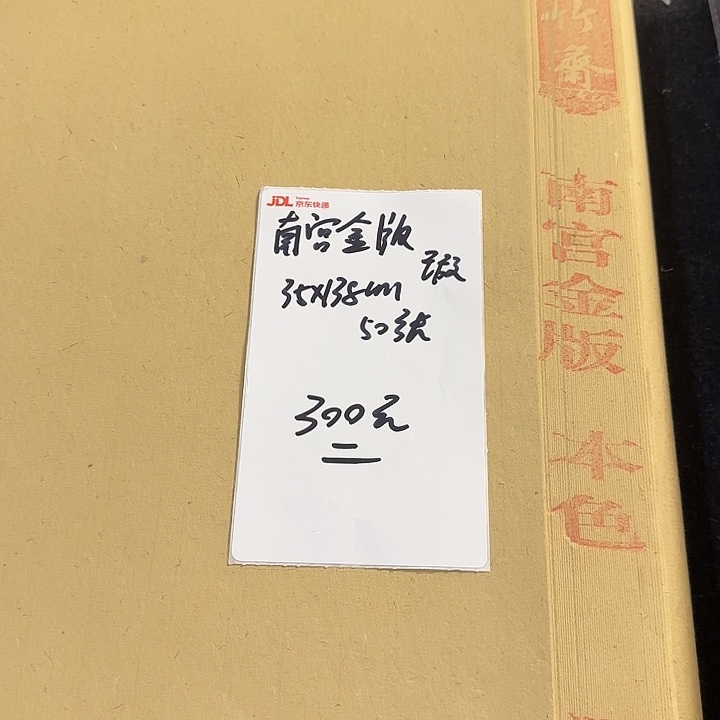 JDL 京东快递
南宫金版
35X138cm
50张
300元
竹斋
南宫金版 本色